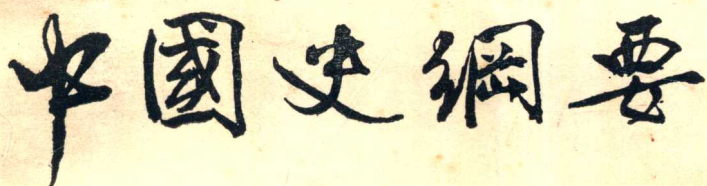 中國史綱要